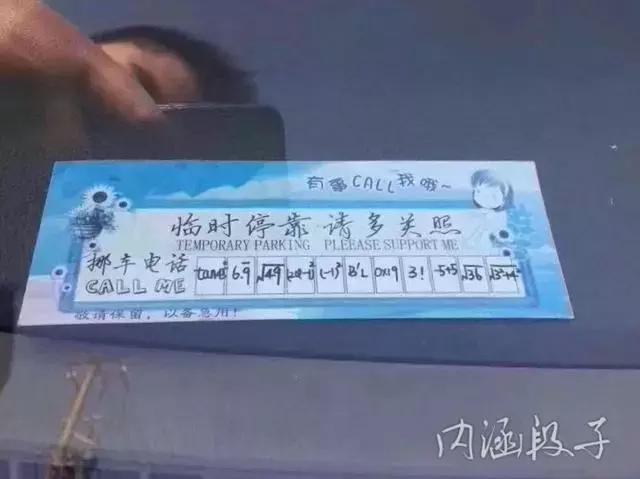 有事CALL我哦~
临时停靠 请多关照
TEMPORARY PARKING PLEEASE SUPPORT ME
挪车电话 tan45° 6.9̅ √49 (-1)² B'L 0×19 3! -5+5 √36 √3²+4²
CALL ME
敬请保留，以备急用!
内涵段子